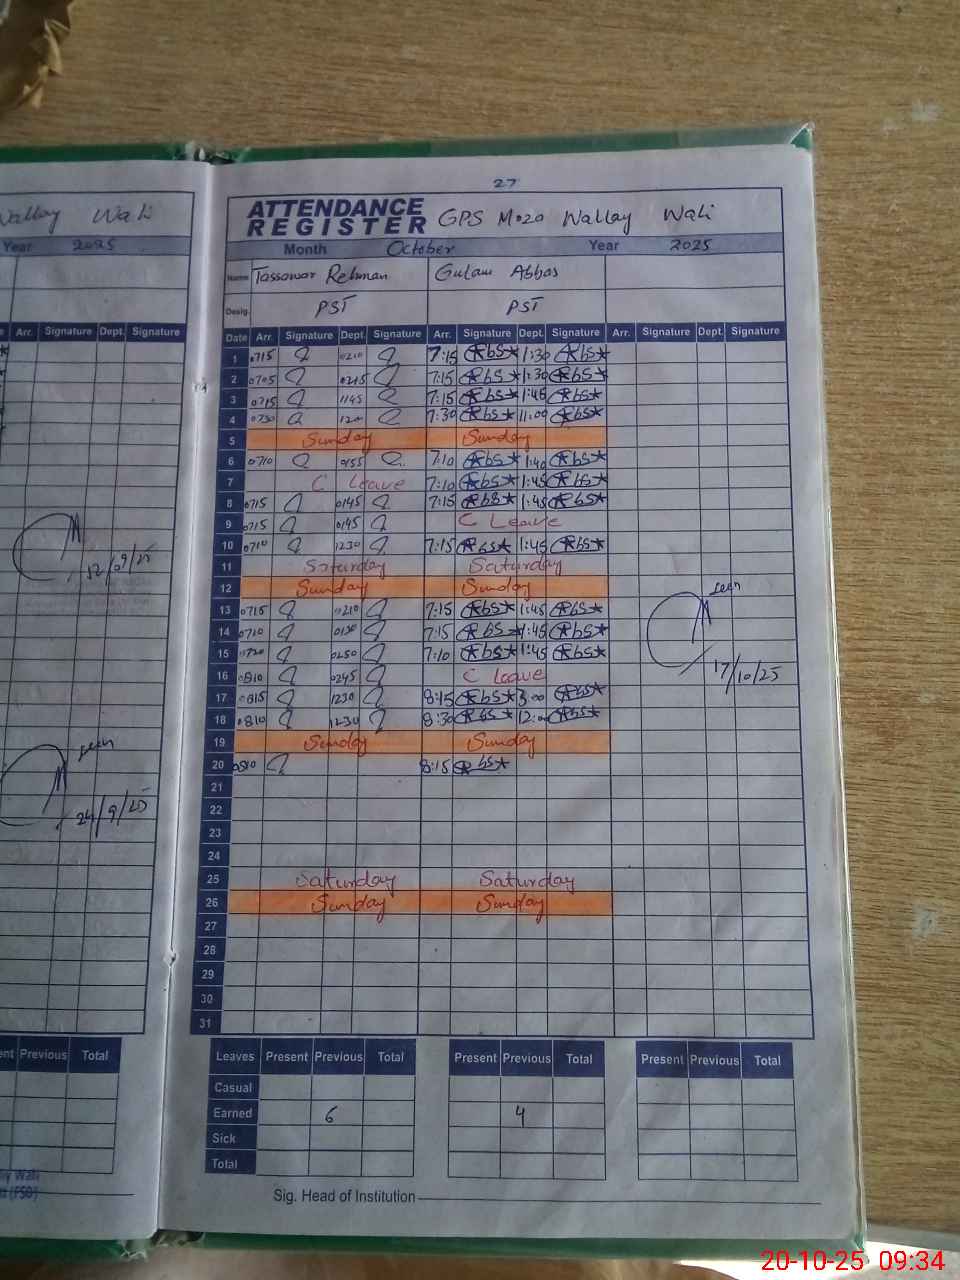 27
ATTENDANCE REGISTER GPS M.20 Wallay Wali
Month October Year 2025
Name Tassawar Rehman Gulam Abbas
Desig. PST PST
Date Arr. Signature Dept. Signature Arr. Signature Dept. Signature Arr. Signature Dept. Signature
1 0715 0210 7:15 1:30
2 0705 0215 7:15 1:30
3 0715 1145 7:15 1:45
4 0730 7:30 11:00
5 Sunday Sunday
6 0710 0155 7:10 1:40
7 C Leave 7:10 1:45
8 0715 0145 7:15 1:45
9 0715 0145 C Leave
10 0710 1230 7:15 1:45
11 Saturday Saturday
12 Sunday Sunday
13 0715 0210 7:15 1:45
14 0710 7:15 1:45
15 0250 7:10 1:45
16 0810 0245 C Leave
17 0815 1230 8:15 3:00
18 0810 1230 8:30 12:00
19 Sunday Sunday
20 0810 8:15
21
22
23
24
25 Saturday Saturday
26 Sunday Sunday
27
28
29
30
31
seen
17/10/25
Leaves Present Previous Total Present Previous Total Present Previous Total
Casual
Earned 6 4
Sick
Total
Sig. Head of Institution
Wallay Wali
Year 2025
Arr. Signature Dept. Signature
seen
24/9/25
Previous Total
20-10-25 09:34